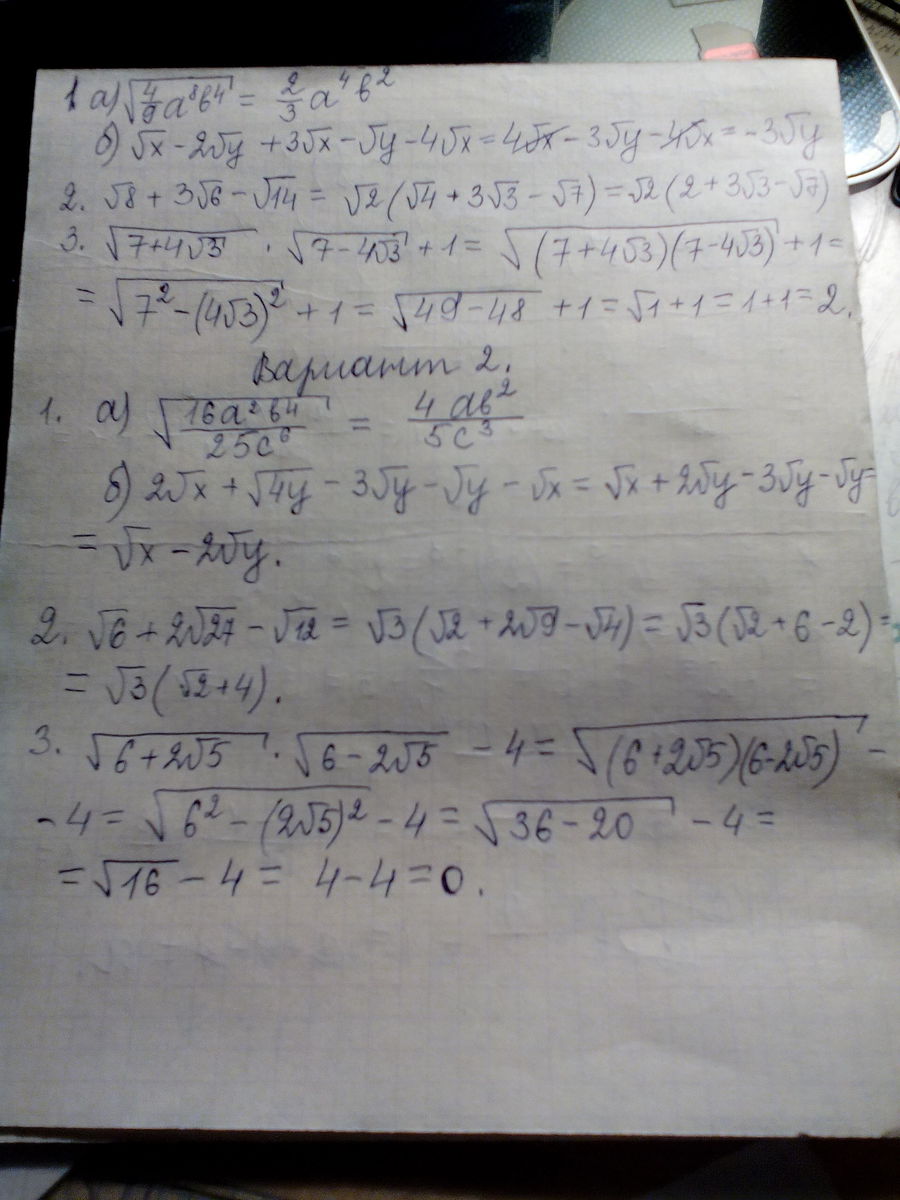 1 а) √(4/9 a⁸b⁴) = 2/3 a⁴b²
б) √x - 2√y + 3√x - √y - 4√x = 4√x - 3√y - 4√x = -3√y
2. √8 + 3√6 - √14 = √2(√4 + 3√3 - √7) = √2(2 + 3√3 - √7)
3. √(7+4√3) · √(7-4√3) + 1 = √((7+4√3)(7-4√3)) + 1 =
= √(7² - (4√3)²) + 1 = √(49-48) + 1 = √1 + 1 = 1+1 = 2.
Вариант 2.
1. а) √(16a²b⁴/25c⁶) = 4ab²/5c³
б) 2√x + √4y - 3√y - √y - √x = √x + 2√y - 3√y - √y =
= √x - 2√y.
2. √6 + 2√27 - √12 = √3(√2 + 2√9 - √4) = √3(√2 + 6 - 2) =
= √3(√2+4).
3. √(6+2√5) · √(6-2√5) - 4 = √((6+2√5)(6-2√5)) -
- 4 = √(6² - (2√5)²) - 4 = √(36-20) - 4 =
= √16 - 4 = 4-4 = 0.